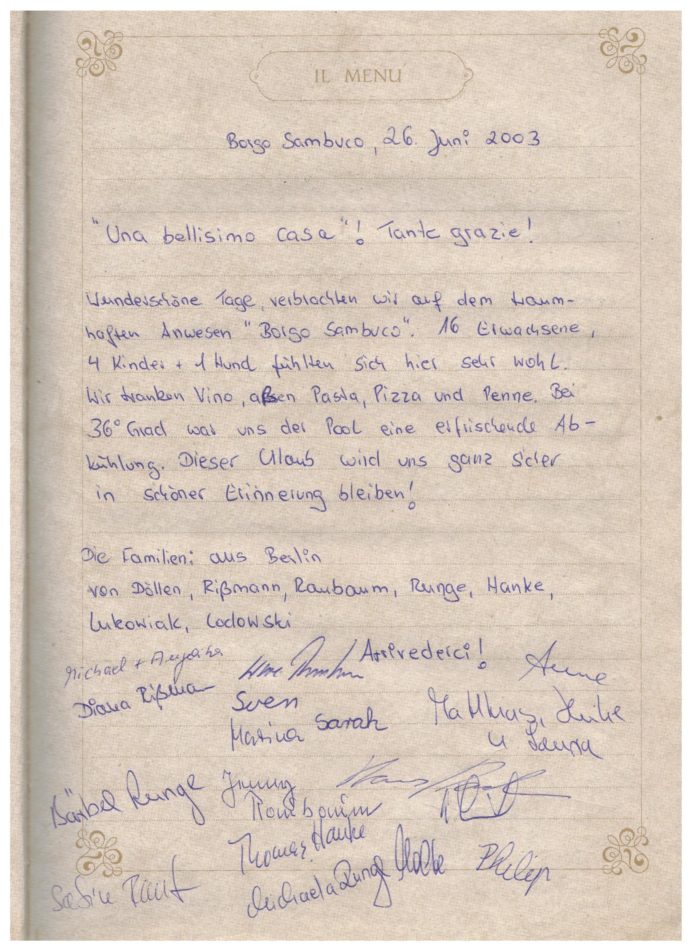 IL MENU
Borgo Sambuco, 26. Juni 2003
"Una bellisimo casa"! Tante grazie!
Wunderschöne Tage, verbrachten wir auf dem traum-
haften Anwesen "Borgo Sambuco". 16 Erwachsene,
4 Kinder + 1 Hund fühlten sich hier sehr wohl.
Wir tranken Vino, aßen Pasta, Pizza und Penne. Bei
36° Grad war uns der Pool eine erfrischende Ab-
kühlung. Dieser Ulaub wird uns ganz sicher
in schöner Erinnerung bleiben!
Die Familien: aus Berlin
von Döllen, Rißmann, Raubaum, Runge, Hanke,
Lukowiak, Lodowski
Arrivederci!
Michael +
Anne
Diana Rißmann
Sven
Marina Sarah
Matthias, Heike
u Laura
Bärbel Runge
Thomas Hanke
Michaela Runge
Philip
Sabine